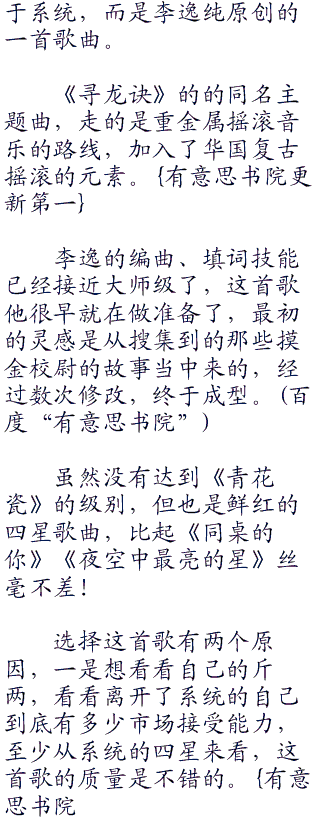 于系统，而是李逸纯原创的
一首歌曲。
《寻龙诀》的的同名主
题曲，走的是重金属摇滚音
乐的路线，加入了华国复古
摇滚的元素。{有意思书院更
新第一}
李逸的编曲、填词技能
已经接近大师级了，这首歌
他很早就在做准备了，最初
的灵感是从搜集到的那些摸
金校尉的故事当中来的，经
过数次修改，终于成型。(百
度“有意思书院”)
虽然没有达到《青花
瓷》的级别，但也是鲜红的
四星歌曲，比起《同桌的
你》《夜空中最亮的星》丝
毫不差！
选择这首歌有两个原
因，一是想看看自己的斤
两，看看离开了系统的自己
到底有多少市场接受能力，
至少从系统的四星来看，这
首歌的质量是不错的。{有意
思书院